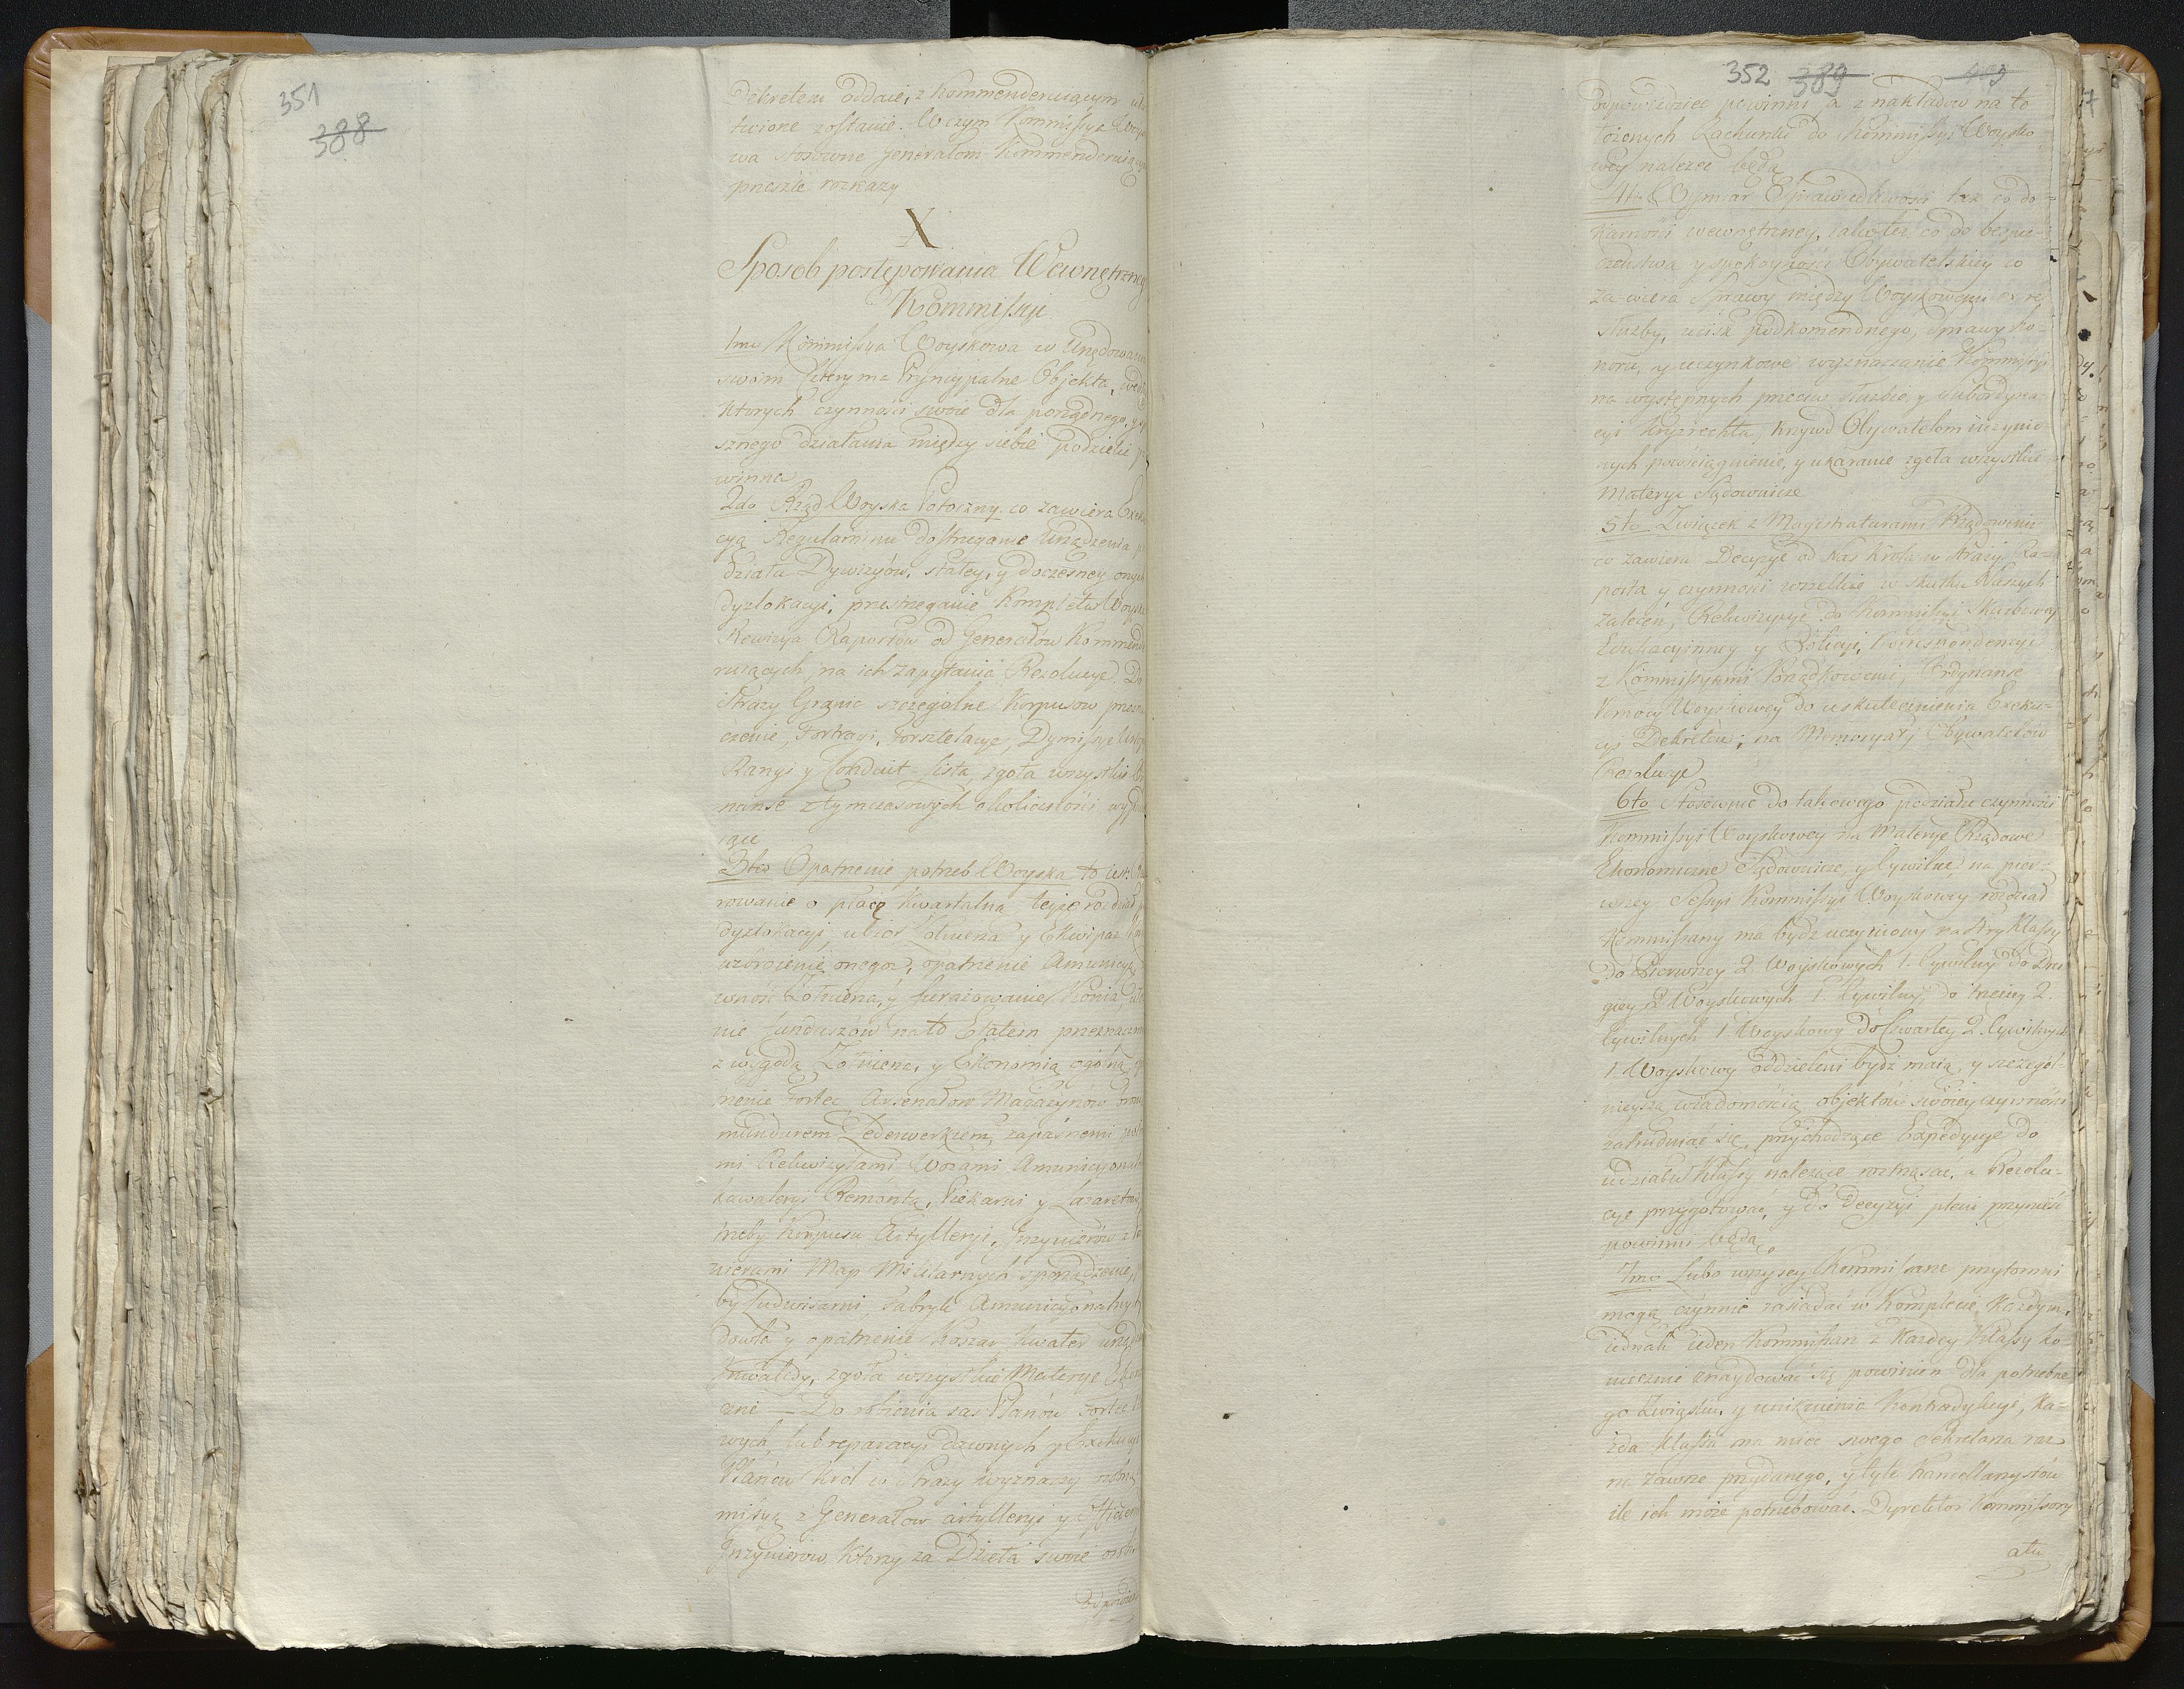 351
388
Dekretem oddaie, z Kommenderuiącym
twione zostanie. W czym Kommissya
wa stosowne Generałom Kommenderuią
przeszle rozkazy
X
Sposob postępowania Wewnętrzney
Kommissyi
1mo Kommissya Woyskowa w Urzędowaniu
swoim cztery ma Pryncypalne Objekta,
ktorych czynności swoie dla porządnego, y
sznego działania między siebie podzielić po
winna
2do Rząd Woyska Potoczny. co zawiera
cyą Regulaminu dostrzeganie Urządzenia
działu Dywizyów, stałey, y doczesney onych
dyzlokacyi, przestrzeganie Kompletu Woyska
Rewizya Raportow od Generałow Kommende
ruiących, na ich zapytania Rezolucye. Do
Straży Granic szczegolne Korpusow przezna
czenie, Fortragi, Forsztelacye, Dymissye
Rangi y Conduit-lista, zgoła wszystkie
nanse z tymczasowych okoliczności
iące
3tio Opatrzenie potrzeb Woyska to iest:
rowanie o płacę kwartalną teyże rozkład
dyzlokacyi, ubior Żołnierza y Ekwipaż
uzbroienie onegoż, opatrzenie Amunicyą
wność Żołnierza, y furażowanie Konia,
nie funduszów na to Etatem przeznaczon
z wygodą Żołnierza, y Ekonomią ogolną
nienie Fortec Arsenałow Magazynow bronią
mundurem Lederwerkiem, zapaśnemi
mi Rekwizytami Wozami Amunicyonal
kawaleryi Remontą, Piekarni y Lazaretow
trzeby Korpusu Artylleryi, Inzynierów
nierami Map Militarnych sporządzenie,
by Ludwisarni Fabryk Amunicyonalnych
dowla y opatrzenie Koszar kwater
Inwalidy, zgoła wszystkie Materye
zne — Do robienia zaś Planów Fortec
wych, lub reparacyi dawnych y Exekucyi
Planów Krol w Straży wyznaczy
missyą z Generałow Artylleryi y
Inzynierow, Ktorzy za Dzieła swoie
odpowied
352 389 403
odpowiedzieć powinni, a z nakładow na to
łożonych Rachunki do Kommissyi Woysko
wey należeć będą
4to Wymiar Sprawiedliwości tak co do
karności wewnętrzney, iako też co do bespie-
czeństwa y spokoyności Obywatelskiey co
zawiera Sprawy między Woyskowemi ex re
służby, ucisk podkomendnego, Sprawy ho-
noru, y uczynkowe wyznaczanie Kommissyi
na występnych przeciw służbie y subordyna-
cyi Krygrechta, krzywd Obywatelom uczynio
nych pościągnienie, y ukaranie zgoła wszystkie
Materye Sądownicze
5to Związek z Magistraturami Rządowemi
co zawiera Decyzye od Nas Krola w Straży Ra-
porta y czynności wszelkie w skutku Naszych
Zaleceń, Rekwizycye do Kommissyi Skarbowey
Edukacyinney y Policyi, Korrespondencye
z Kommissyami Porządkowemi, Ordynanse
Pomocy Woyskowey do uskutecznienia Exeku-
cyi Dekretow, na Memoryały Obywatelów
Rezolucye
6to Stosownie do takowego podziału czynności
Kommissyi Woyskowey na Materye Rządowe
Ekonomiczne Sądownicze, y Cywilne, na pier-
wszey Sessyi Kommissyi Woyskowey rozkład
Kommissarzy ma bydź uczyniony na 4ry Klassy
do Pierwszey 2 Woyskowych 1. Cywilny do Dru
giey 2 Woyskowych 1. Cywilny, do trzeciey 2.
Cywilnych 1. Woyskowy do Czwartey 2. Cywilnych
1. Woyskowy oddzieleni bydź maią, y szczegól-
nieyszą wiadomością objektów swoiey czynności
zatrudniać się, przychodzące Expedycye do
udziału Klassy należące roztrząsać, a Rezolu-
cye przygotować, y do Decyzyi pełni przynieść
powinni będą
7mo Lubo wszyscy Kommissarze przytomni
mogą czynnie zasiadać w Komplecie Każdym,
iednak ieden Kommissarz z Każdey Klassy ko-
niecznie znaydować się powinien dla potrzebne
go Związku, y uniknienia Kontradykcyi, Ka-
żda Klassa ma mieć swego Sekretarza raz
na zawsze przydanego, y tyle Kancellarzystow
ile ich może potrzebować. Dyrektor Kommissory
atu